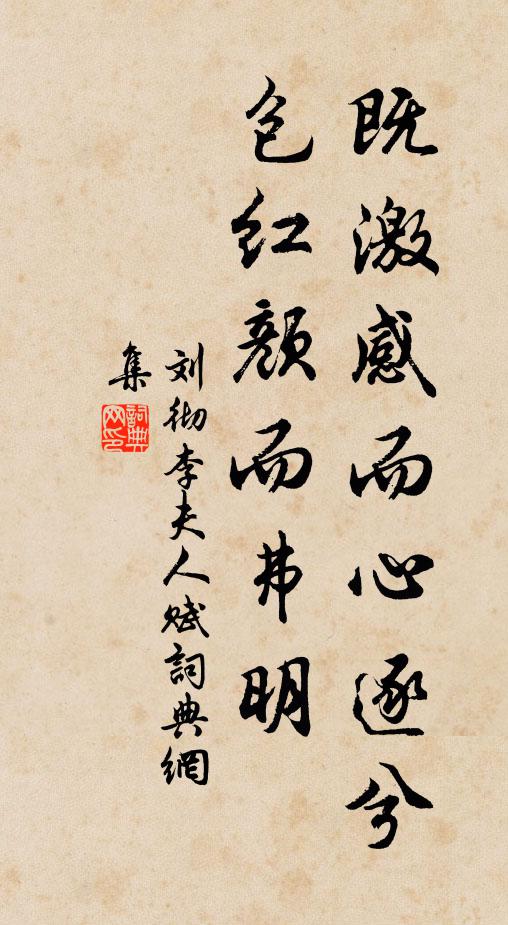 既激感而心逐兮
包红颜而弗明
刘彻李夫人赋詞典網
集
詞典
网印